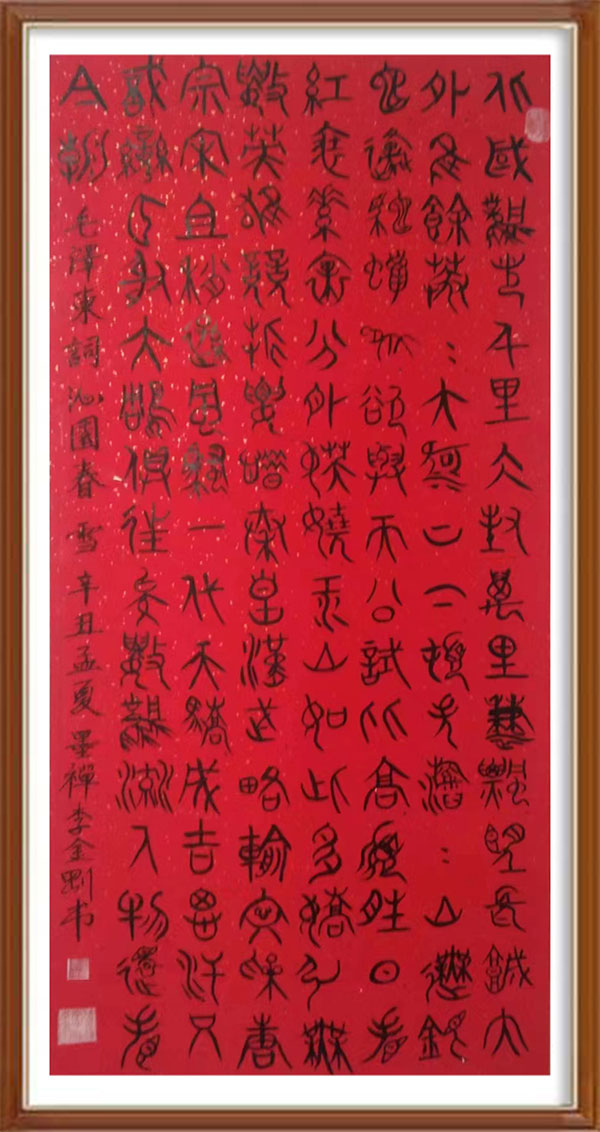 北國風光千里冰封萬里雪飄望長城內
外惟餘莽：大河上下頓失滔：山舞銀
蛇原馳蠟象欲與天公試比高須晴日看
紅裝素裹分外妖嬈江山如此多嬌引無
數英雄競折腰惜秦皇漢武略輸文采唐
宗宋祖稍遜風騷一代天驕成吉思汗只
識彎弓射大雕俱往矣數風流人物還看
今朝 毛澤東詞沁園春雪 辛丑孟夏墨禪李金剛书